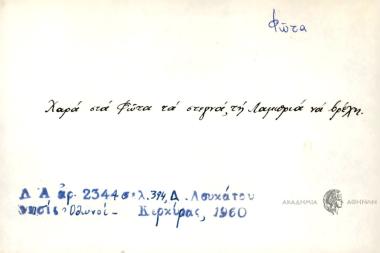 Φῶτα
Χαρά στά Φῶτα τά στεγνά, τή Λαμπριά νά βρέχη.
Λ Α ἀρ. 2344 σελ. 394, Δ. Λουκάτου
νησίς Ὀθωνοί - Κερκίρας, 1960
ΑΚΑΔΗΜΙΑ ΑΘΗΝΩΝ